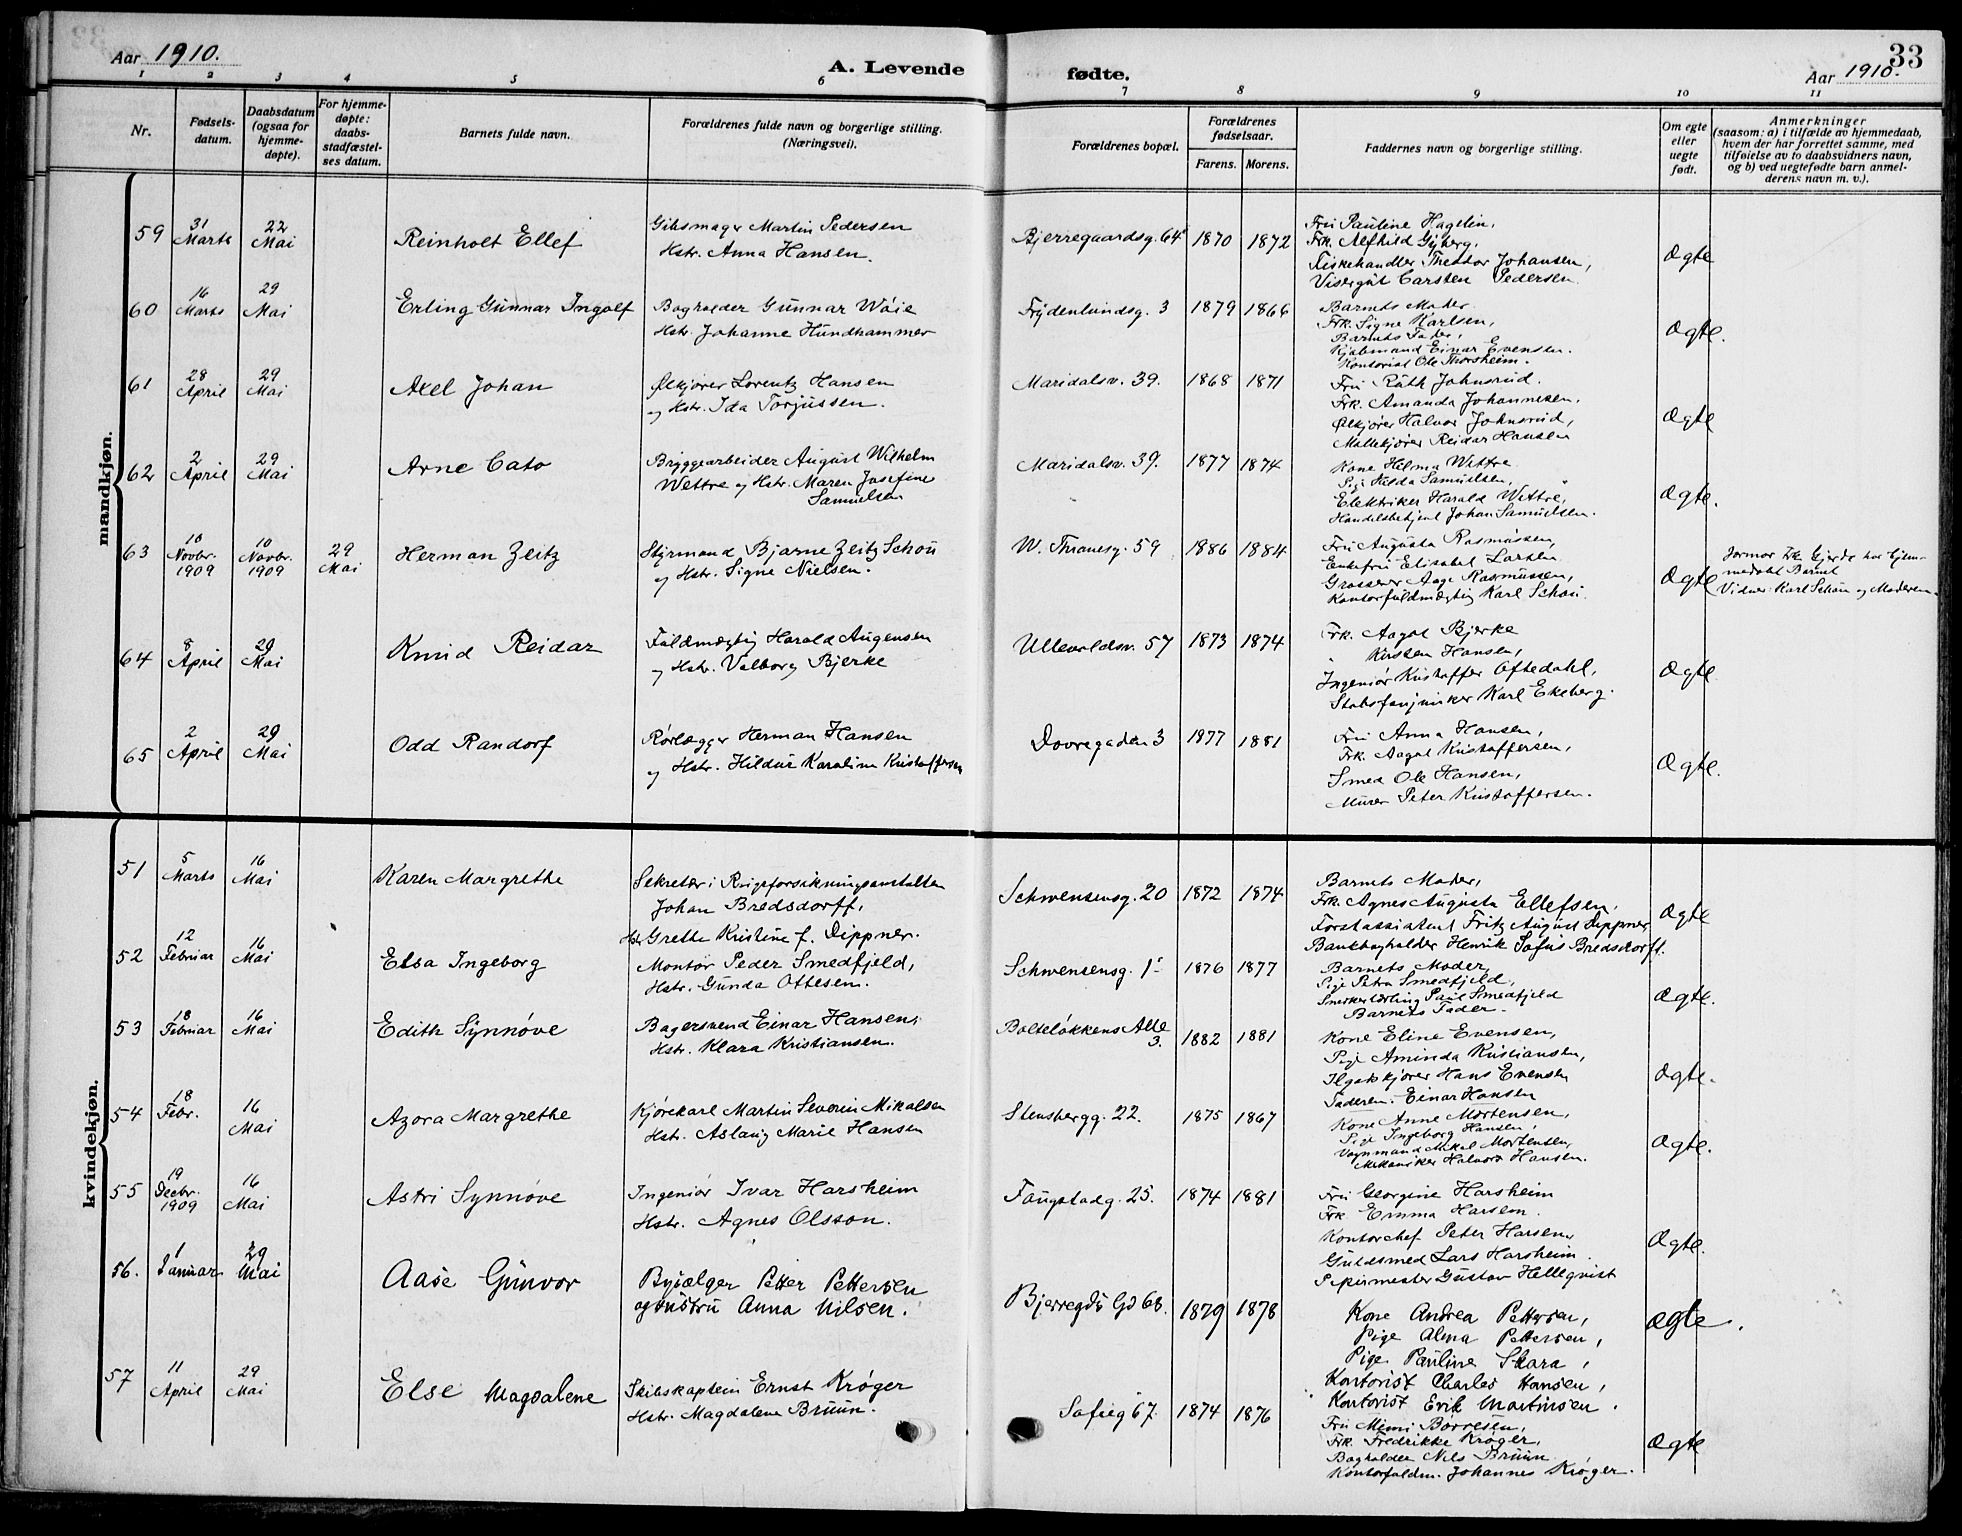 Aar 1910.
A. Levende
fødte.
Aar 1910.
33
1 2 3 4 5 6 7 8 9 10 11
Nr.
Fødsels-
datum.
Daabsdatum
(ogsaa for
hjemme-
døpte).
For hjemme-
døpte:
daabs-
stadfæstel-
ses datum.
Barnets fulde navn.
Forældrenes fulde navn og borgerlige stilling.
(Næringsvei).
Forældrenes bopæl.
Forældrenes
fødselsaar.
Farens. Morens.
Faddernes navn og borgerlige stilling.
Om egte
eller
uegte
født.
Anmerkninger
(saasom: a) i tilfælde av hjemmedaab,
hvem der har forrettet samme, med
tilføielse av to daabsvidners navn,
og b) ved uegtefødte barn anmel-
derens navn m. v.).
mandkjøn.
59
31
Marts
22
Mai
Reinholt Ellef
Gibsmager Martin Pedersen
Hstr. Anna Hansen.
Bjerregaardsg. 64
1870 1872
Fru Pauline Hagelin,
Frk. Alfhild Gyberg,
Fiskehandler Theodor Johansen,
Visergut Carsten Pedersen.
Ægte
60
16
Marts
29
Mai
Erling Gunnar Ingolf
Bogholder Gunnar Wøie
Hstr. Johanne Hundhammer
Frydenlundsg. 3
1879 1866
Barnets Moder
Frk. Signe Karlsen,
Barnets Fader,
Kjøbmand Einar Evensen.
Kontorist Ole Thorsheim.
Ægte.
61
28
April
29
Mai
Axel Johan
Ølkjører Lorentz Hansen
og Hstr. Ida Torjussen.
Maridalsv. 39.
1868 1871
Fru Ruth Johnsrud.
Frk. Amanda Johannesen,
Ølkjører Halvor Johnsrud,
Møllekjører Reidar Hansen
Ægte
62
2
April
29
Mai
Arne Cato
Bryggearbeider August Wilhelm
Wettre og Hstr. Maren Josefine
Samuelsen
Maridalsv. 39.
1877 1874
Kone Hilma Wettre,
Pige Hilda Samuelsen,
Elektriker Harald Wettre,
Handelsbetjent Johan Samuelsen.
Ægte.
63
10
Novbr.
1909
10
Novbr.
1909
29
Mai
Herman Zeitz
Styrmand Bjarne Zeitz Schou
og Hstr. Signe Nielsen.
W. Thranesg. 59
1886 1884
Fru Augusta Rasmussen,
Enkefru Elisabet Larsen
Grosserer Aage Rasmussen,
Kontorfuldmægtig Karl Schou.
Ægte
Jormor Frk. Gjerde har hjem-
medøbt Barnet
Vidner: Karl Schou og Moderen.
64
8
April
29
Mai
Knud Reidar
Fuldmægtig Harald Augensen
og Hstr. Valborg Bjerke
Ullevoldsv. 57
1873 1874
Frk. Aagot Bjerke
" Kirsten Hansen,
Ingeniør Kristoffer Oftedahl,
Stabsfanjunker Karl Ekeberg.
Ægte
65
2
April
29
Mai
Odd Randorf
Rørlægger Herman Hansen
og Hstr. Hildur Karoline Kristoffersen
Dovregaden 3
1877 1881
Fru Anna Hansen,
Frk. Aagot Kristoffersen,
Smed Ole Hansen,
Murer Peter Kristoffersen.
Ægte.
kvindekjøn.
51
5
Marts
16
Mai
Karen Margrethe
Sekretær i Rigsforsikringsanstalten
Johan Bredsdorff,
Hstr Grethe Kristine f. Dippner.
Schwensensg. 20
1872 1874
Barnets Moder,
Frk. Agnes Augusta Ellefsen,
Forstassistent Fritz August Dippner
Bankbogholder Henrik Sofus Bredsdorff.
Ægte
52
12
Februar
16
Mai
Elsa Ingeborg
Montør Peder Smedfjeld,
Hstr. Gunda Ottesen.
Schwensensg. 1
1876 1877
Barnets Moder
Pige Petra Smedfjeld,
Snekkerlærling Paul Smedfjeld
Barnets Fader.
Ægte.
53
18
Februar
16
Mai
Edith Synnøve
Bagersvend Einar Hansen,
Hstr. Klara Kristiansen.
Bolteløkkens Alle
3.
1882 1881
Kone Eline Evensen,
Pige Aminda Kristiansen,
Ilgodskjører Hans Evensen
Faderen. Einar Hansen
Ægte.
54
18
Febr.
16
Mai
Azora Margrethe
Kjørekarl Martin Severin Mikalsen
Hstr. Aslaug Marie Hansen
Stensbergg. 22.
1875 1867
Kone Anne Mortensen,
Pige Ingeborg Hansen,
Vognmand Mikal Mortensen,
Mekaniker Halvor Hansen.
Ægte.
55
19
Decbr.
1909
16
Mai
Astri Synnøve
Ingeniør Ivar Harsheim
Hstr. Agnes Olsson.
Faugstadg. 25.
1874 1881
Fru Georgine Harsheim
Frk Emma Harsem.
Kontorchef Peter Harsem,
Guldsmed Lars Harsheim.
Papirmester Gustav Hellqvist
Ægte.
56.
1
Januar
29
Mai
Aase Gunvor
Bysælger Petter Pettersen
og Hustru Anna Nilsen.
Bjerregds Gd 68.
1879 1878
Kone Andrea Pettersen,
Pige Alma Pettersen,
Pige Pauline Skara,
Kontorist Charles Hansen,
Kontorist Erik Martinsen.
Ægte.
57
11
April
29
Mai
Else Magdalene
Skibskaptein Ernst Krøger
Hstr. Magdalene Bruun.
Sofieg 67.
1874 1876
Fru Mimi Børresen,
Frk. Fredrikke Krøger,
Bogholder Nils Bruun
Kontorfuldm. Johannes Krøger.
Ægte